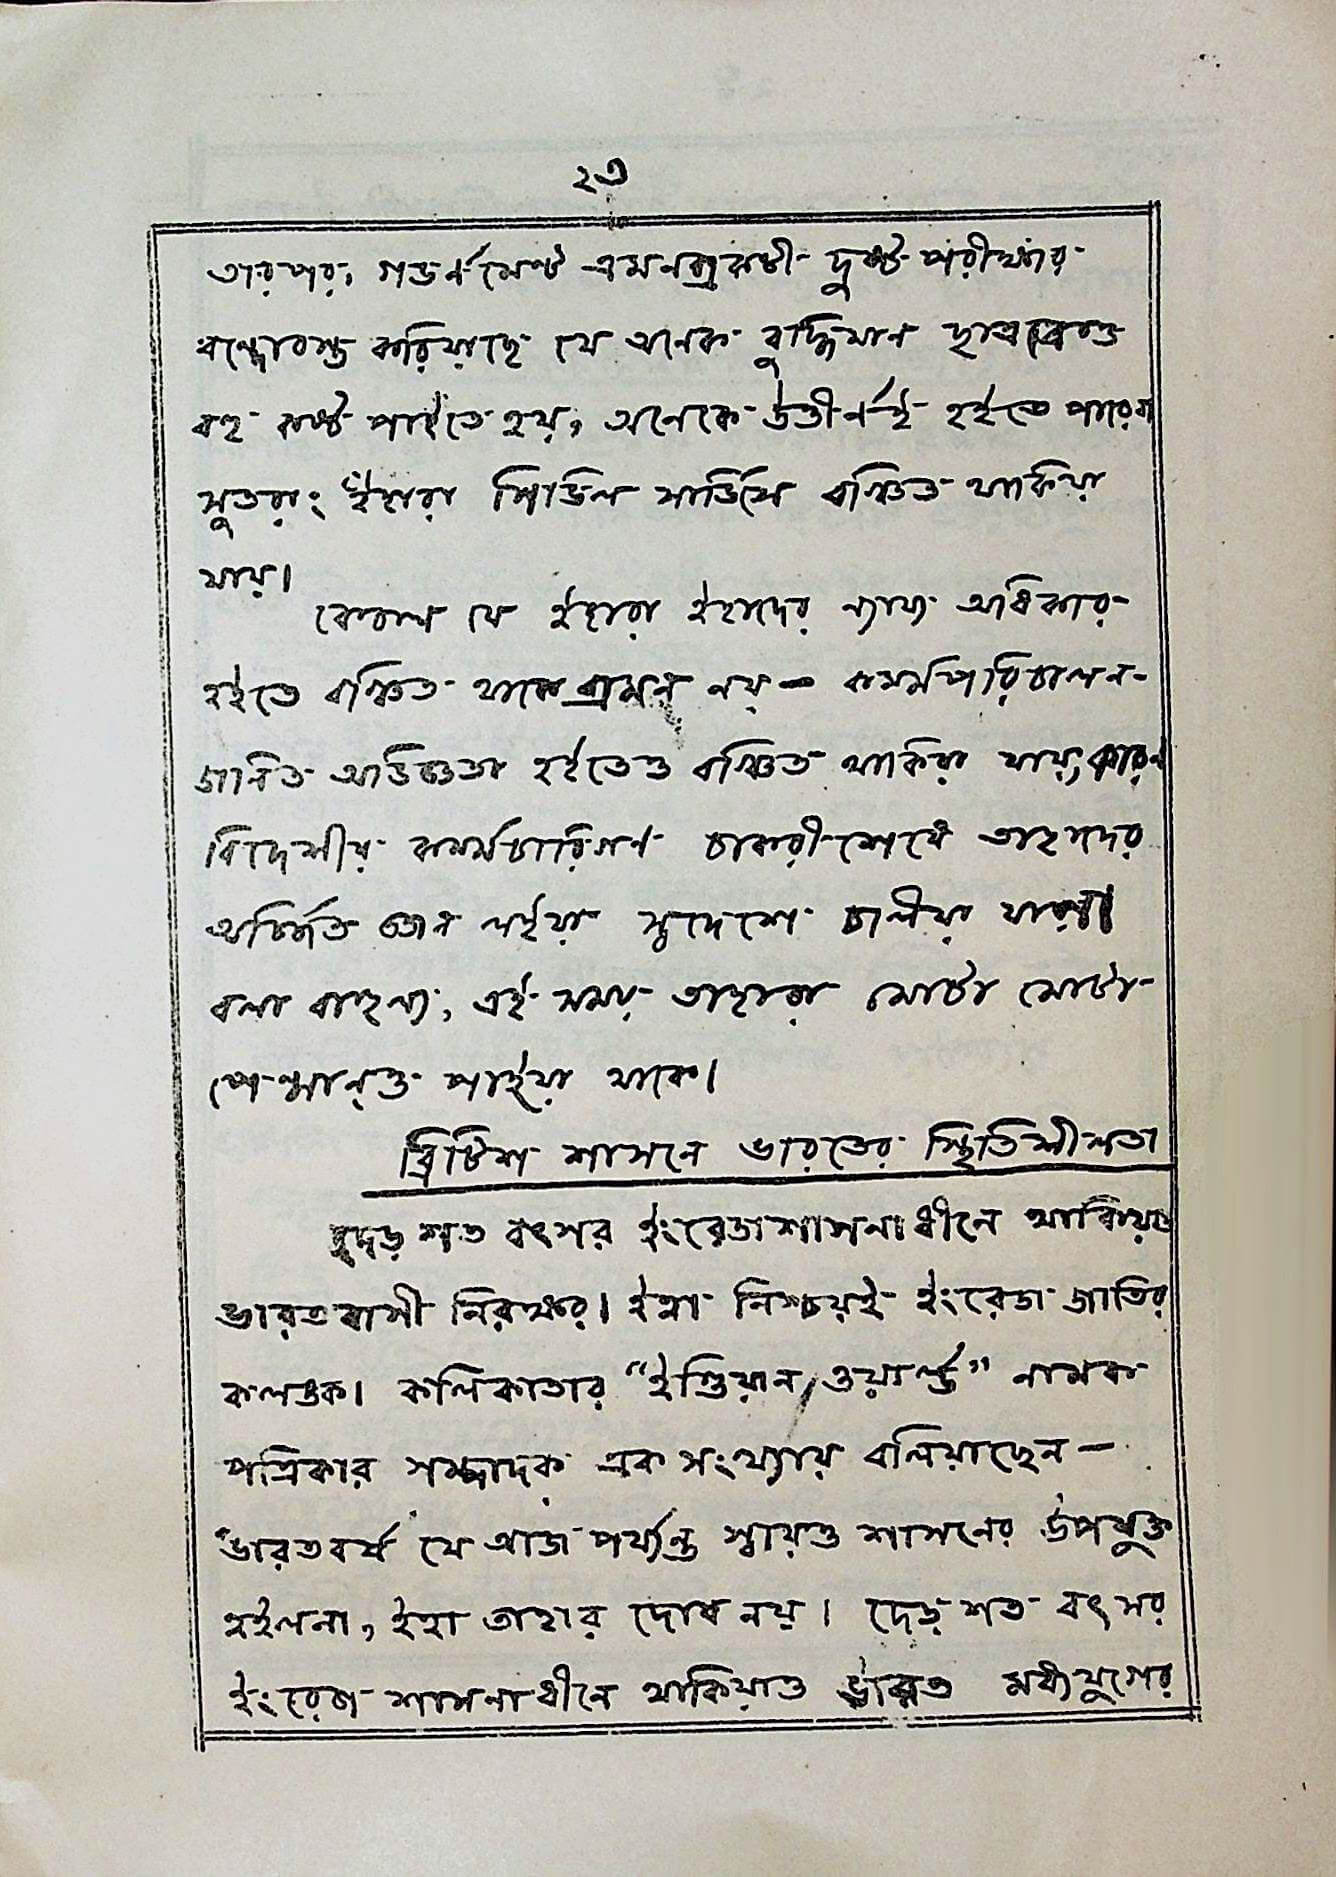 ২৩
তারপর, গভর্নমেন্ট এমন একটী দুষ্ট পরীক্ষার
বন্দোবস্ত করিয়াছে যে অনেক বুদ্ধিমান ছাত্রেরও
বহু কষ্ট পাইতে হয়, অনেকে উত্তীর্নই হইতে পারেনা
সুতরাং ইহারা সিভিল সার্ভিসে বঞ্চিত থাকিয়া
যায়।
কেবল যে ইহারা ইহাদের ন্যায্য অধিকার
হইতে বঞ্চিত থাকে এমন নয় — কর্মপরিচালন-
জনিত অভিজ্ঞতা হইতেও বঞ্চিত থাকিয়া যায়, কারন
বিদেশীয় কর্মচারিগন চাকরী শেষে তাহাদের
অর্জিত জ্ঞান লইয়া স্বদেশে চলীয়া যায়।
বলা বাহুল্য, এই সময় তাহারা মোটা মোটা
পেন্সান্‌ও পাইয়া থাকে।
ব্রিটিশ শাসনে ভারতের স্থিতিশীলতা
দেড় শত বৎসর ইংরেজ শাসনাধীনে থাকিয়াও
ভারতবাসী নিরক্ষর। ইহা নিশ্চয়ই ইংরেজ জাতির
কলঙক। কলিকাতার "ইণ্ডিয়ান ওয়ার্ল্ড" নামক
পত্রিকার সম্পাদক এক সংখ্যায় বলিয়াছেন —
"ভারতবর্ষ যে আজ পর্য্যন্ত স্বায়ত্ত শাসনের উপযুক্ত
হইলনা, ইহা তাহার দোষ নয়। দেড় শত বৎসর
ইংরেজ শাসনাধীনে থাকিয়াও ভারত মধ্যযুগের